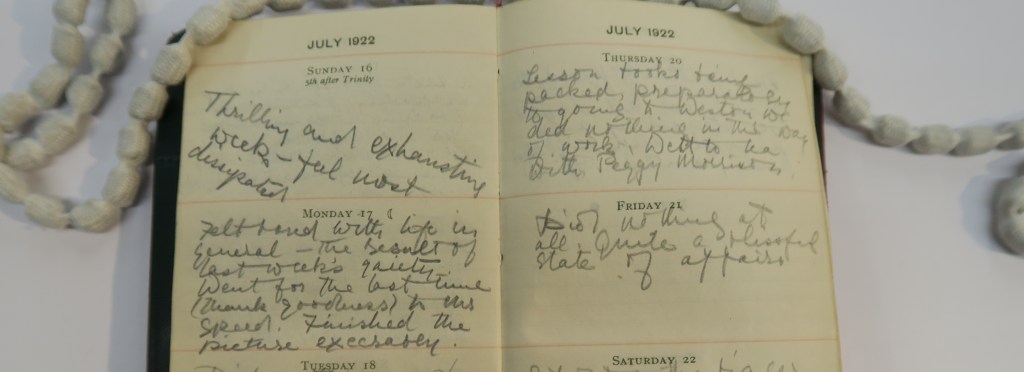 JULY 1922
SUNDAY 16
5th after Trinity
Thrilling and exhausting
week – feel most
dissipated
MONDAY 17 ☾
Felt bored with life in
general – the result of
last week's gaiety.
Went for the last time
(thank goodness) to Mr
Speed. Finished the
picture execrably.
TUESDAY 18
JULY 1922
THURSDAY 20
Lesson books being
packed, preparatory
to going to Weston we
did nothing in the way
of work. Went to tea
with Peggy Morrison.
FRIDAY 21
Did nothing at
all. Quite a blissful
state of affairs
SATURDAY 22